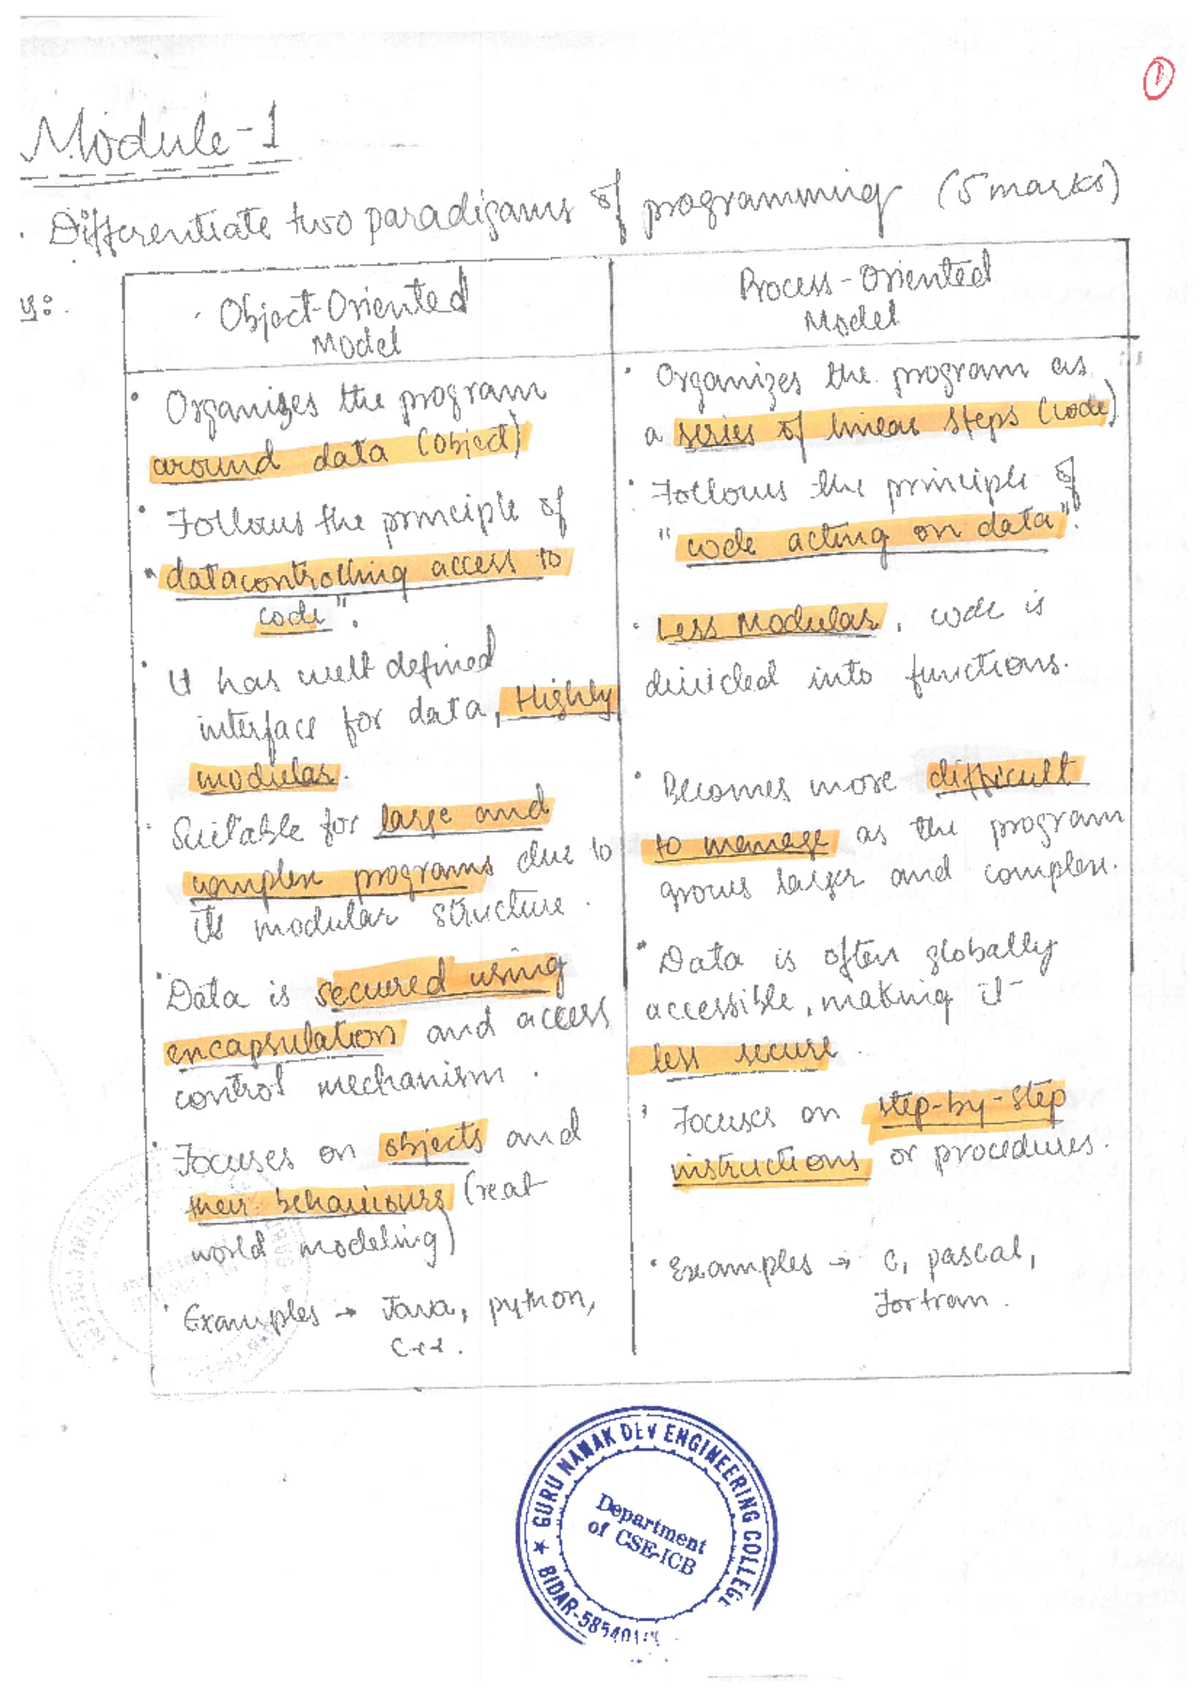 1
Module-1
. Differentiate two paradigams of programming (5 marks)
Object-Oriented
Model
• Organizes the program
around data (object)
• Follows the principle of
"datacontrolling access to
code".
• It has well defined
interface for data, Highly
modular.
• Suitable for large and
complex programs due to
its modular structure.
• Data is secured using
encapsulation and access
control mechanism.
• Focuses on objects and
their behaviours (real
world modeling)
• Examples → Java, python,
C++.
Process-Oriented
Model
• Organizes the program as
a series of linear steps (code)
• Follows the principle of
"code acting on data".
• Less Modular, code is
divided into functions.
• Becomes more difficult
to manage as the program
grows larger and complex.
• Data is often globally
accessible, making it
less secure.
• Focuses on step-by-step
instructions or procedures.
• Examples → C, pascal,
Fortran.
★ GURU NANAK DEV ENGINEERING COLLEGE
BIDAR-585401
Department
of CSE-ICB